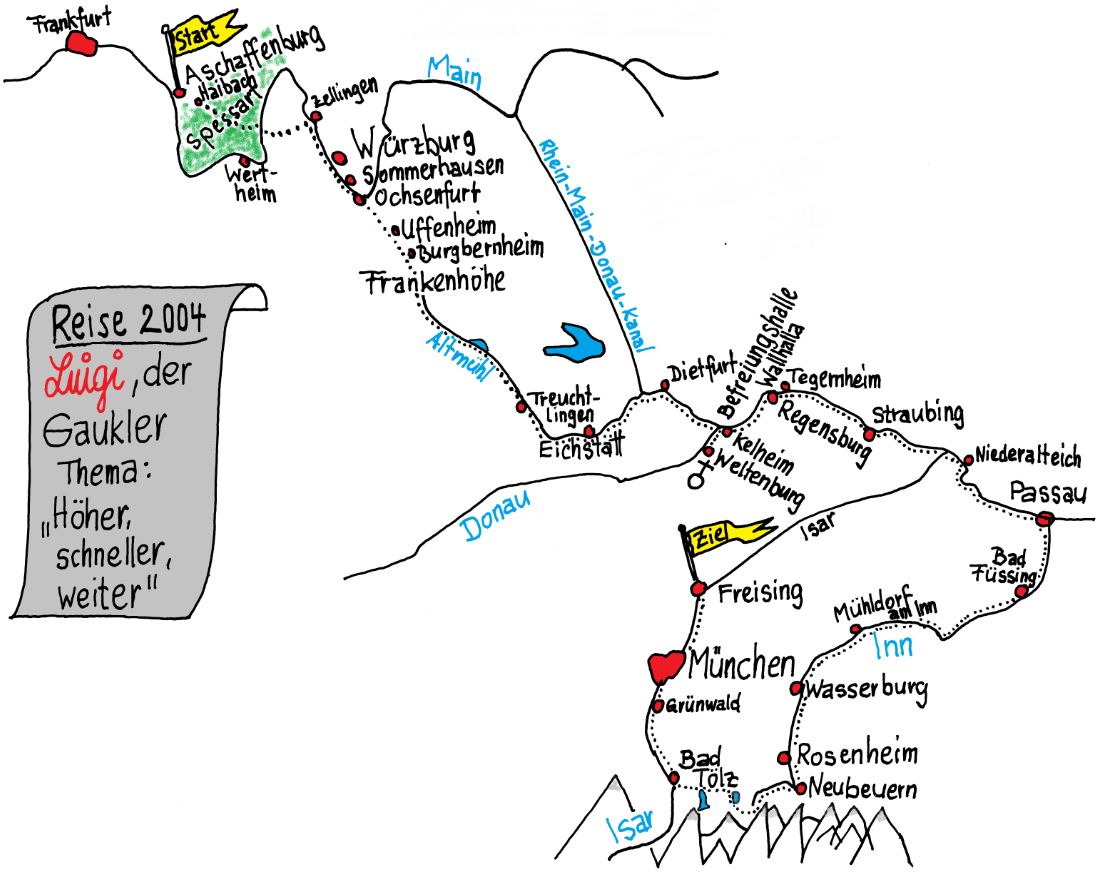 Frankfurt
Start
Aschaffenburg
Haibach
Spessart
Wert-
heim
Zellingen
Main
Würzburg
Sommerhausen
Ochsenfurt
Uffenheim
Burgbernheim
Frankenhöhe
Rhein-Main-Donau-Kanal
Altmühl
Treucht-
lingen
Eichstätt
Dietfurt
Befreiungshalle
Wallhalla
Tegernheim
Regensburg
Kelheim
Weltenburg
Straubing
Niederalteich
Passau
Donau
Isar
Ziel
Freising
Bad
Füssing
Mühldorf
am Inn
Inn
München
Grünwald
Wasserburg
Rosenheim
Neubeuern
Bad
Tölz
Isar
Reise 2004
Luigi, der
Gaukler
Thema:
„Höher,
schneller,
weiter"